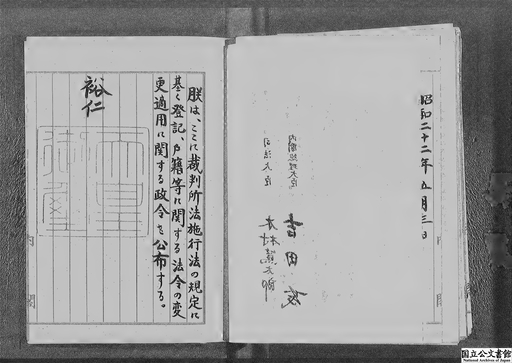 朕は、ここに裁判所法施行法の規定に
基く登記、戸籍等に関する法令の変
更適用に関する政令を公布する。
裕仁
天皇
御璽
昭和二十二年五月三日
内閣総理大臣
吉田茂
司法大臣
木村篤太郎
内閣
国立公文書館
National Archives of Japan